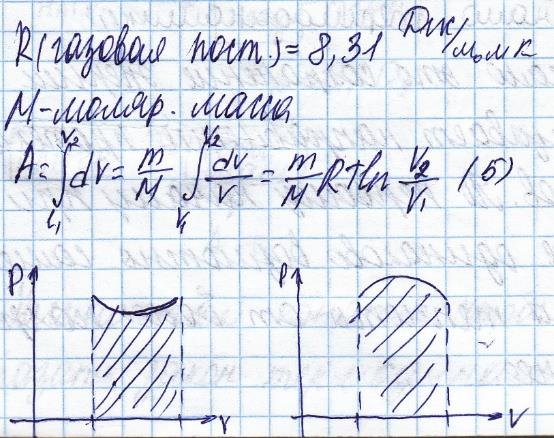 R(газовая пост.) = 8,31 Дж/моль К
M-моляр. масса
A = ∫_{V₁}^{V₂} dV = m/M ∫_{V₁}^{V₂} dV/V = m/M RT ln V₂/V₁ (5)
P P
V V